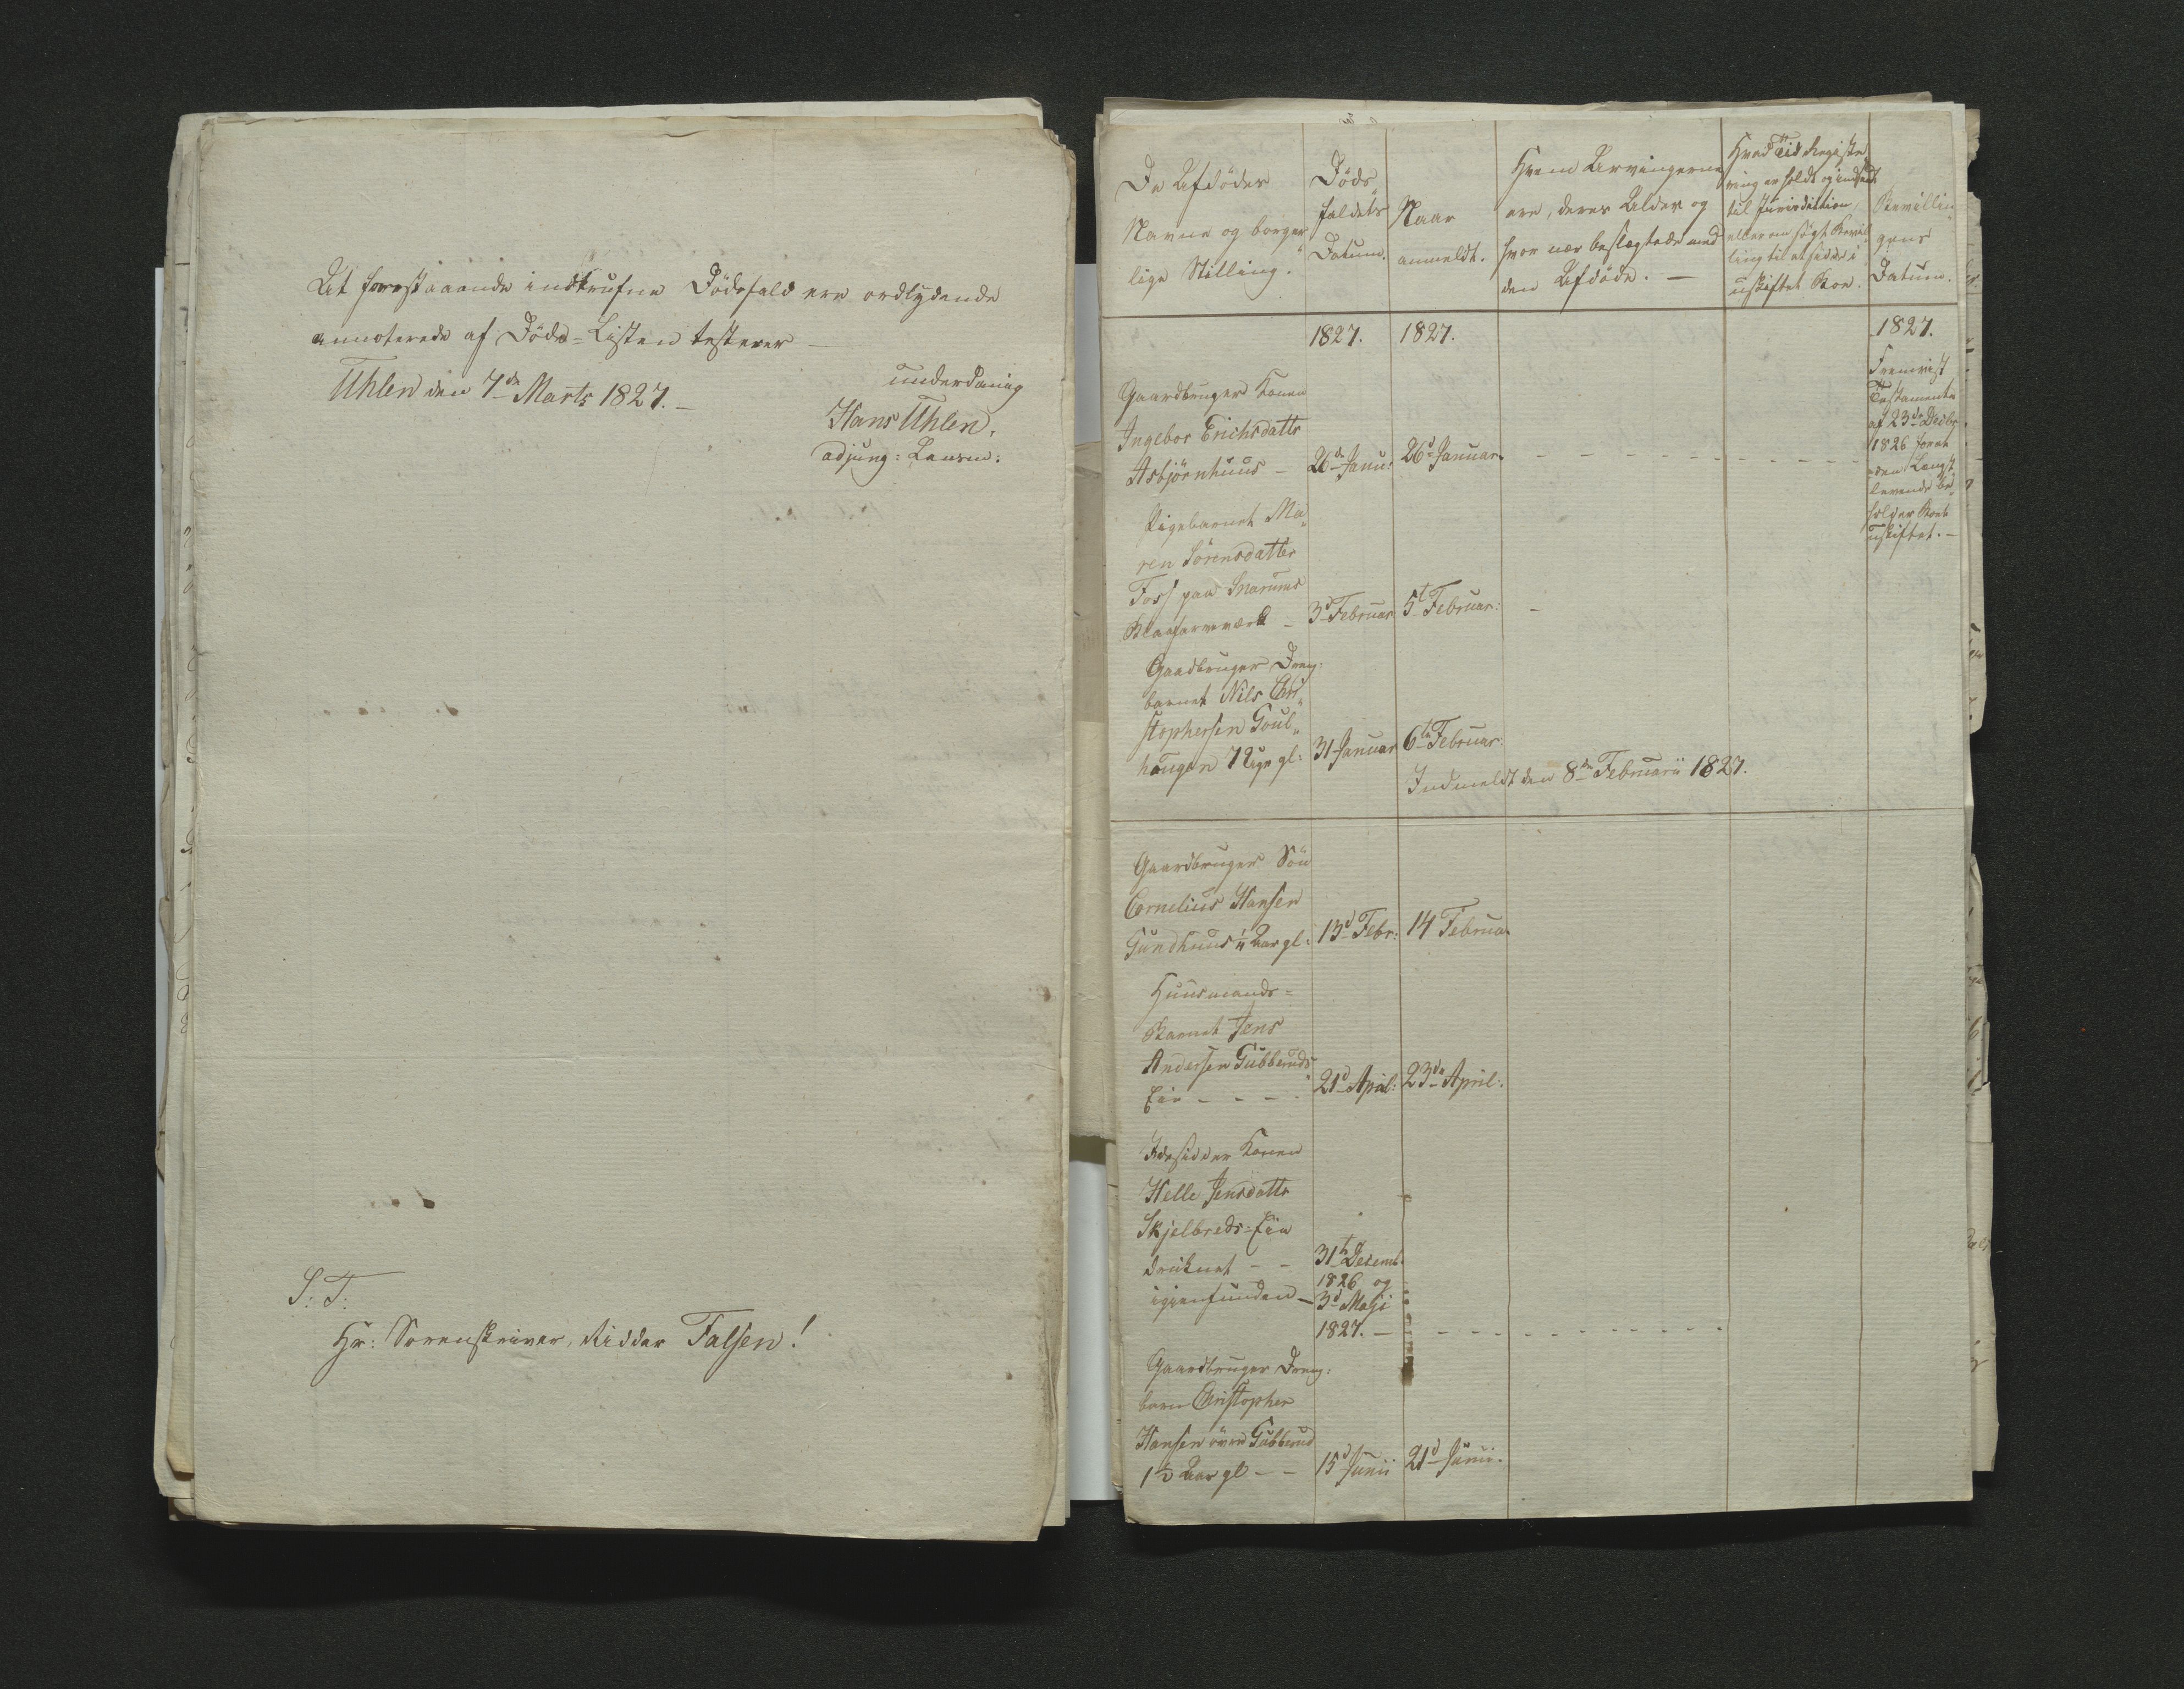 At forestaaende indtrufne Dödsfald ere ordlydende
annoterede af Döds=Listen testerer —
Uhlen den 7de Marts 1827. —
underdanig
Hans Uhlen,
adjung: Lensm:
S: T:
Hr: Sorenskriver, Ridder Falsen!
De Afdödes
Navne og borger„
lige Stilling.
Döds„
faldets
Datum.
Naar
anmeldt.
Hvem Arvingerne
ere, deres Alder og
hvor nær beslægtede med
den Afdöde. —
Hvad Tid Registe„
ring er holdt og indsendt
til Jurisdiction,
eller om sögt Bevil„
ling til at sidde i
uskiftet Boe.
Bevillin„
gens
Datum.
1827.
1827.
1827.
Gaardbruger Konen
Ingebor Erichsdattr
Asbjörnhuus —
26de Janu:
26d Januar.
Fremvist
Testamente
af 23de Decbr
1826 hvor
den Længst„
levende be„
holder Boet
uskiftet. —
Pigebarnet Ma„
ren Sörensdatter
Foss paa Snarums
Blaafarveværk —
3d Februar
5t Februar:
Gaardbruger Dreng:
barnet Nils Chri„
stophersen Goul„
haugen 7 Uger gl:
31 Januar
6te Februar:
Indmeldt den 8de Februarii 1827.
Gaardbruger Sön
Cornelius Hansen
Gundhuus 1/4 Aar gl:
13d Febr:
14 Februar
Huusmands=
Barnet Jens
Andersen Gubberuds„
Eie - - - -
21d April:
23de April:
Indsidder Konen
Helle Jensdattr
Skjelbreds=Eie
druknet - -
igjenfunden —
31te Decemb:
1826 og
3d Maji
1827. —
Gaardbruger Dreng:
barn Christopher
Hansen övre Gubberud
1 1/2 Aar gl - -
15d Junii
21d Junii.